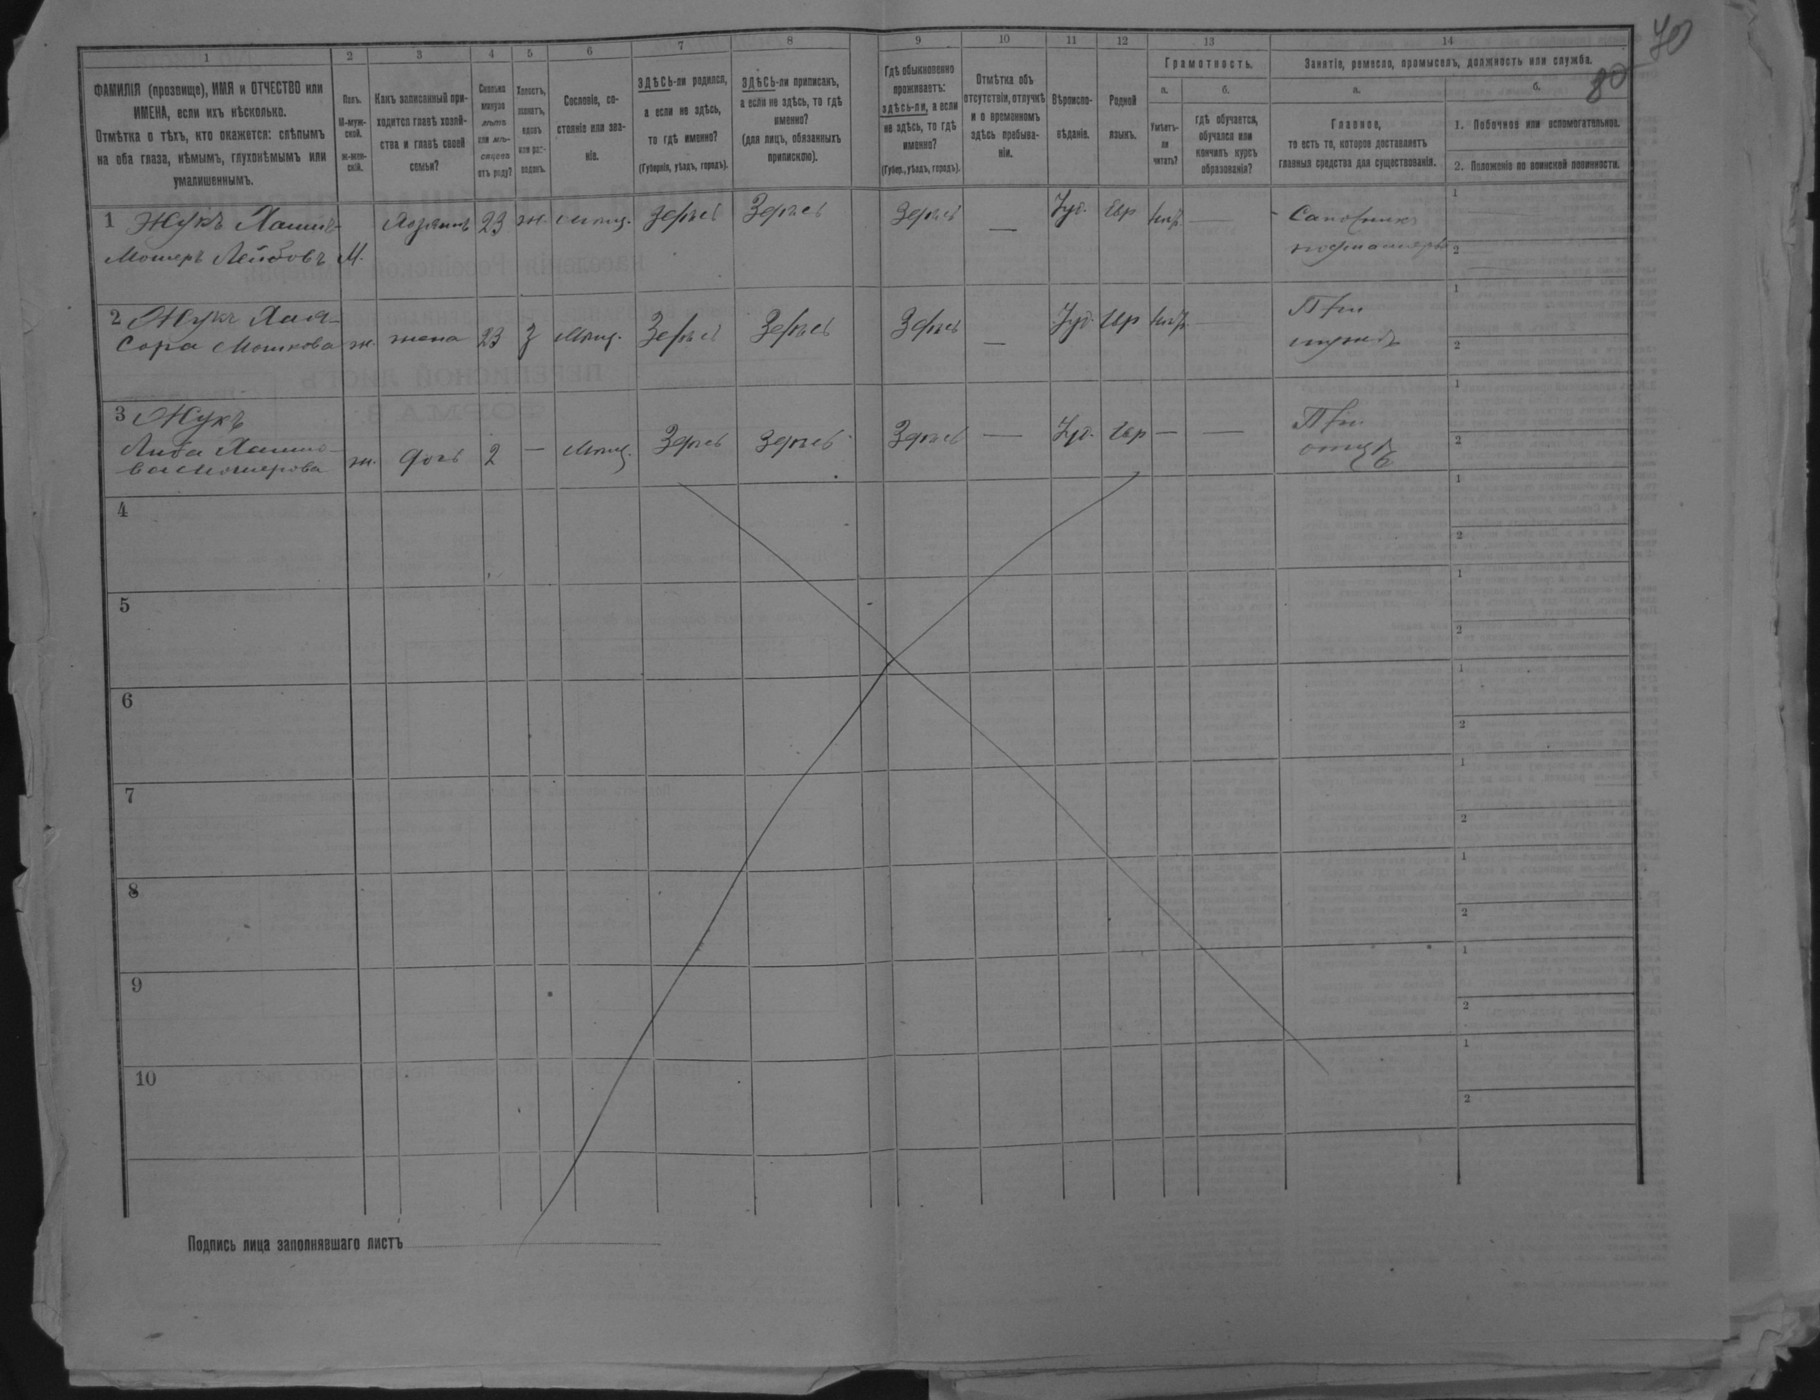 70
80
1 2 3 4 5 6 7 8 9 10 11 12 13 14
ФАМИЛІЯ (прозвище), ИМЯ и ОТЧЕСТВО или
ИМЕНА, если ихъ нѣсколько.
Отмѣтка о тѣхъ, кто окажется: слѣпымъ
на оба глаза, нѣмымъ, глухонѣмымъ или
умалишеннымъ.
Полъ.
М-муж-
ской.
Ж-жен-
скій.
Какъ записанный при-
ходится главѣ хозяй-
ства и главѣ своей
семьи?
Сколько
минуло
лѣтъ
или мѣ-
сяцевъ
отъ роду?
Холостъ,
женатъ,
вдовъ
или раз-
веденъ.
Сословіе, со-
стояніе или зва-
ніе.
ЗДѢСЬ-ли родился,
а если не здѣсь,
то гдѣ именно?
(Губернія, уѣздъ, городъ).
ЗДѢСЬ-ли приписанъ,
а если не здѣсь, то гдѣ
именно?
(для лицъ, обязанныхъ
припискою).
Гдѣ обыкновенно
проживаетъ:
здѣсь-ли, а если
не здѣсь, то гдѣ
именно?
(Губер., уѣздъ, городъ).
Отмѣтка объ
отсутствіи, отлучкѣ
и о временномъ
здѣсь пребыва-
ніи.
Вѣроиспо-
вѣданіе.
Родной
языкъ.
Грамотность.
а.
Умѣетъ-
ли
читать?
б.
Гдѣ обучается,
обучался или
кончилъ курсъ
образованія?
Занятіе, ремесло, промыселъ, должность или служба.
а.
Главное,
то есть то, которое доставляетъ
главныя средства для существованія.
б.
1. Побочное или вспомогательное.
2. Положеніе по воинской повинности.
1 Жукъ
Лейбовъ М. 23 ж здѣсь здѣсь здѣсь — Іуд. Евр —
1
2
2 Жукъ
Сора Мошкова ж. жена 23 З мѣщ. здѣсь здѣсь здѣсь — Іуд. Евр — При
мужѣ
1
2
3 Жукъ
Либа
ж. дочь 2 — мѣщ. здѣсь здѣсь здѣсь — Іуд. Евр — — При
отцѣ
1
2
4
1
2
5
1
2
6
1
2
7
1
2
8
1
2
9
1
2
10
1
2
Подпись лица заполнявшаго листъ